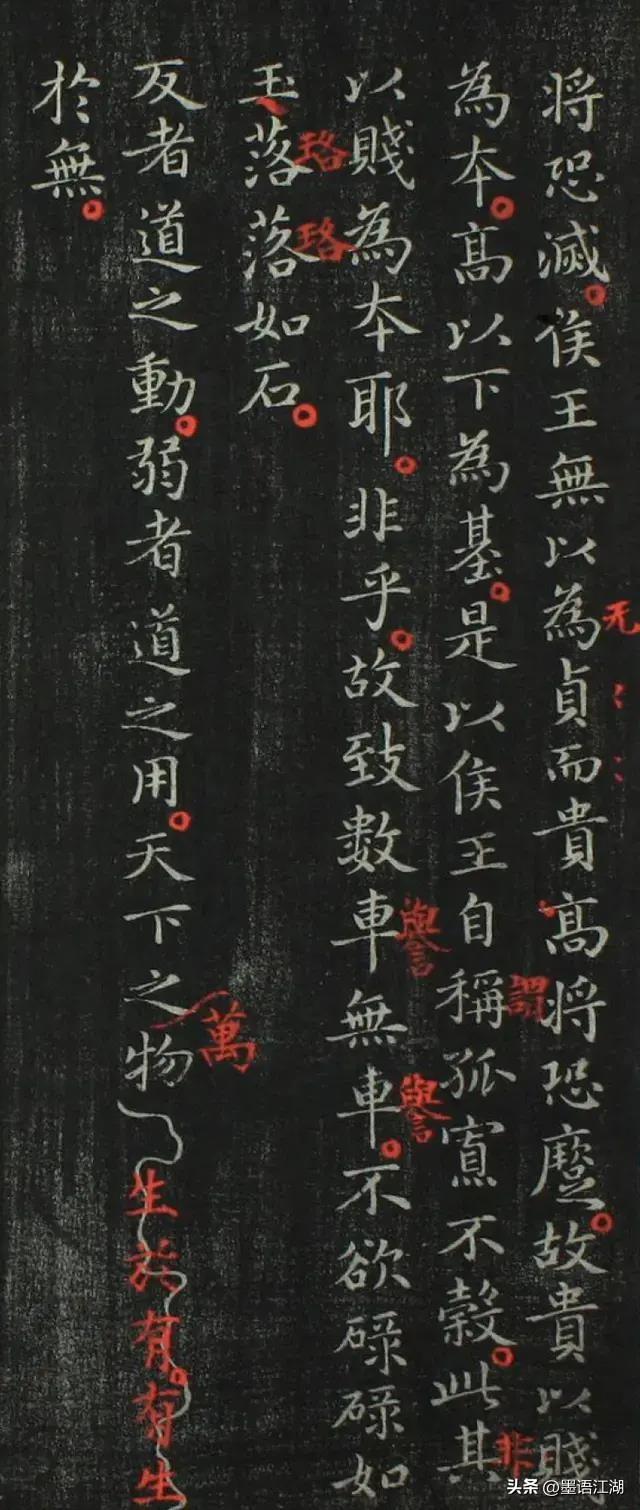 无
将恐滅。侯王無以為貞而貴高将恐蹷。故貴以賤
謂
非
為本。高以下為基。是以侯王自稱孤寡不穀。此其
譽
譽
以賤為本耶。非乎。故致數車無車。不欲碌碌如
珞
珞
玉落落如石。
萬
反者道之動。弱者道之用。天下之物生於有。有生
於無。
头条 @墨语江湖